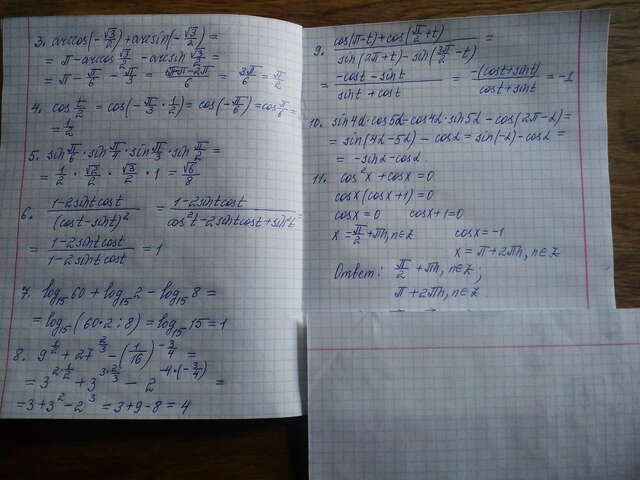 3. arccos(-√3/2) + arcsin(-√3/2) =
= π - arccos √3/2 - arcsin √3/2 =
= π - π/6 - π/3 = (6π-π-2π)/6 = 3π/6 = π/2
4. cos t/2 = cos(-π/3 · 1/2) = cos(-π/6) = cos π/6 =
= 1/2
5. sin π/6 · sin π/4 · sin π/3 · sin π/2 =
= 1/2 · √2/2 · √3/2 · 1 = √6/8
6. (1-2sintcost)/(cost-sint)² = (1-2sintcost)/(cos²t-2sintcost+sin²t) =
= (1-2sintcost)/(1-2sintcost) = 1
7. log₁₅60 + log₁₅2 - log₁₅8 =
= log₁₅(60·2:8) = log₁₅15 = 1
8. 9^(1/2) + 27^(2/3) - (1/16)^(-3/4) =
= 3^(2·1/2) + 3^(3·2/3) - 2^(-4·(-3/4)) =
= 3 + 3² - 2³ = 3+9-8 = 4
9. (cos(π-t) + cos(π/2+t))/(sin(2π+t) - sin(3π/2-t)) =
= (-cost-sint)/(sint+cost) = (-(cost+sint))/(cost+sint) = -1
10. sin4α·cos5α-cos4α·sin5α-cos(2π-α) =
= sin(4α-5α) - cosα = sin(-α)-cosα =
= -sinα-cosα
11. cos²x + cosx = 0
cosx(cosx+1) = 0
cosx = 0 cosx+1=0
x = π/2 + πn, n∈Z cosx = -1
x = π + 2πn, n∈Z
Ответ: π/2 + πn, n∈Z;
π + 2πn, n∈Z